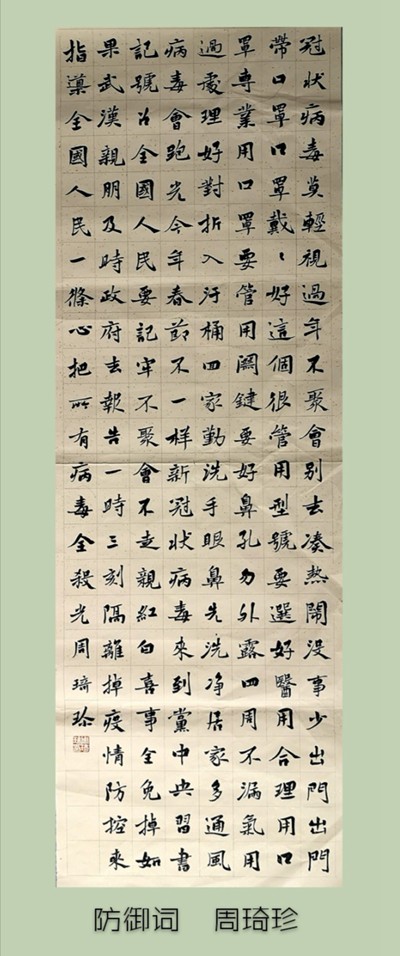 冠状病毒莫輕視過年不聚會别去凑熱鬧没事少出門出門
帶口罩口罩戴〻好這個很管用型號要選好醫用合理用口
罩専業用口罩要管用關鍵要好鼻孔勿外露四周不漏氣用
過處理好對折入汙桶回家勤洗手眼鼻先洗净居家多通風
病毒會跑光今年春節不一样新冠状病毒來到黨中央習書
記號召全國人民要記牢不聚會不走親紅白喜事全免掉如
果武漢親朋及時政府去報告一時三刻隔離掉疫情防控來
指導全國人民一條心把所有病毒全殺光周琦珍
防御词 周琦珍